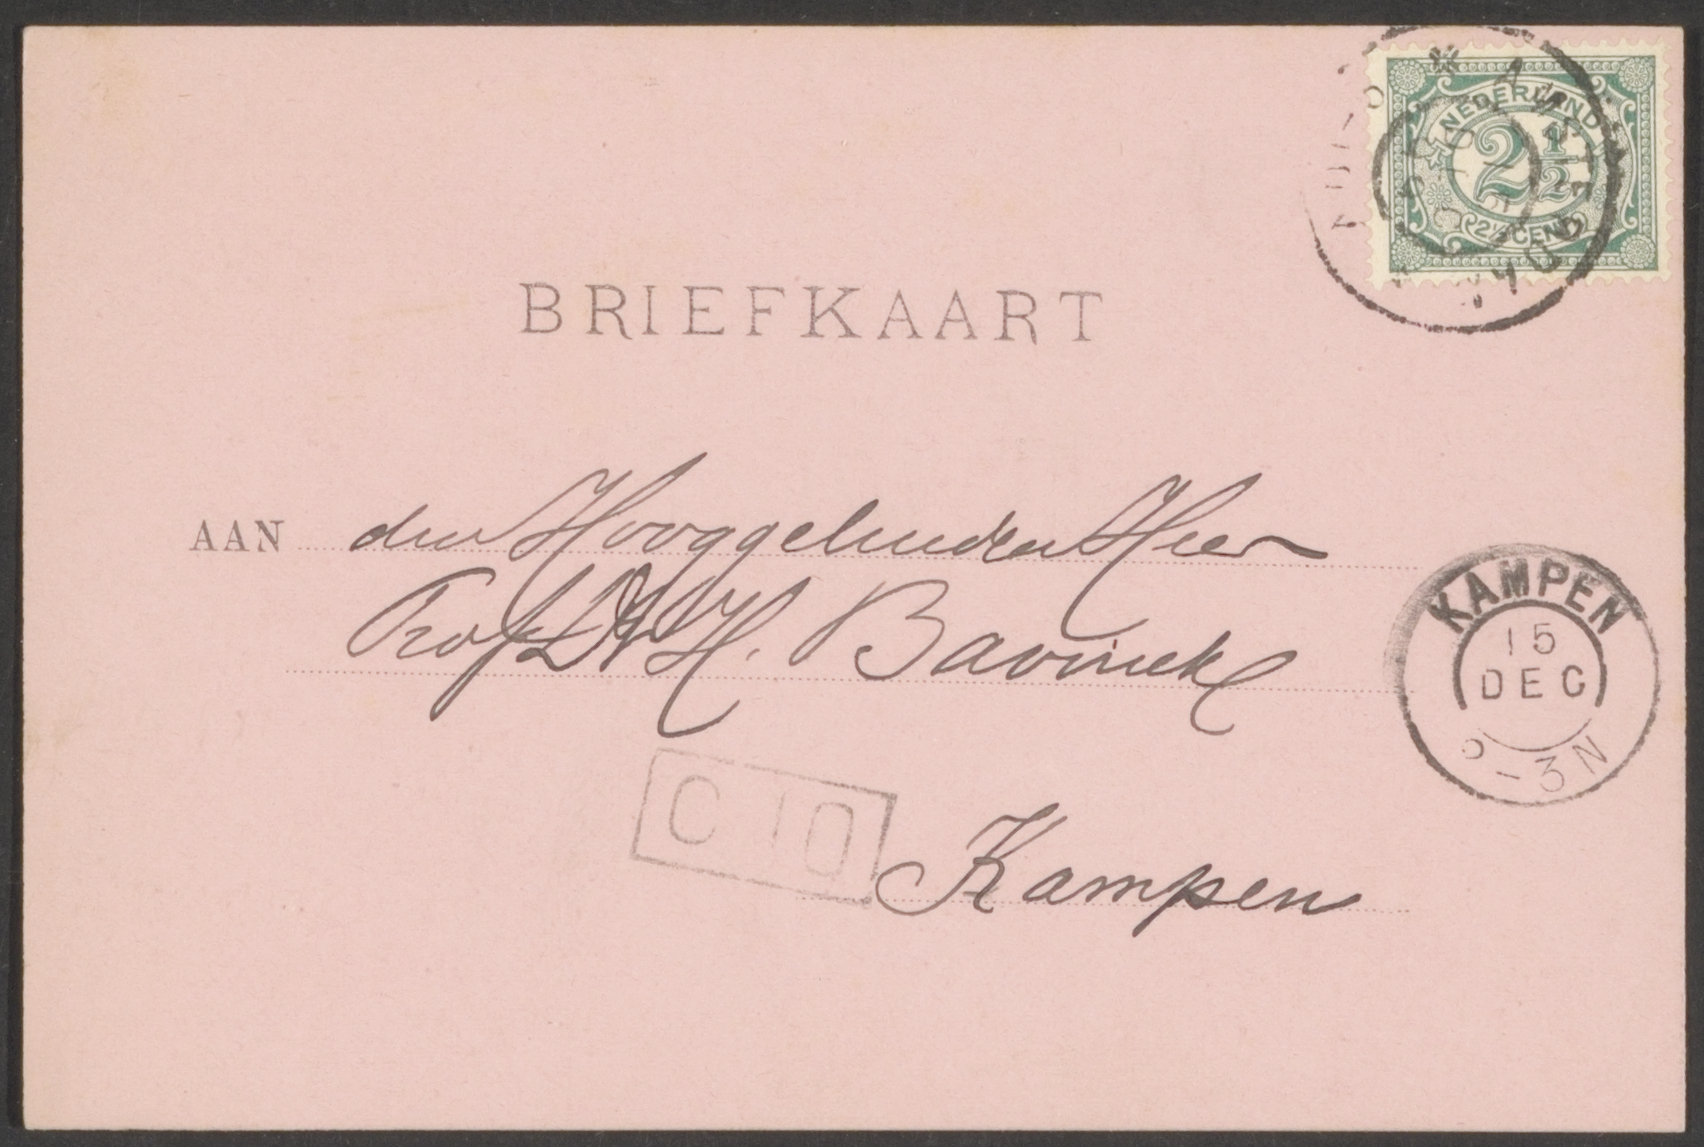 NEDERLAND
2½
2½ CENT
AMSTERDAM
BRIEFKAART
AAN den Hooggeleerden Heer
Prof. Dr. H. Bavinck
KAMPEN
15
DEC
2-3N
C 10
Kampen